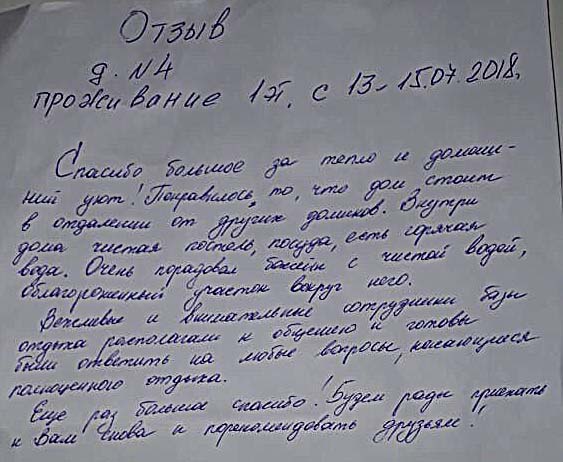 Отзыв
д. N4
проживание 1эт. с 13-15.07.2018,
Спасибо большое за тепло и домаш-
ний уют! Понравилось, то, что дом стоит
в отдалении от других домиков. Внутри
дома чистая постель, посуда, есть горячая
вода. Очень порадовал бассейн с чистой водой,
облагороженный участок вокруг него.
Вежливые и внимательные сотрудники базы
отдыха располагали к общению и готовы
были ответить на любые вопросы, касающиеся
полноценного отдыха.
Еще раз большое спасибо! Будем рады приехать
к Вам снова и порекомендовать друзьям!